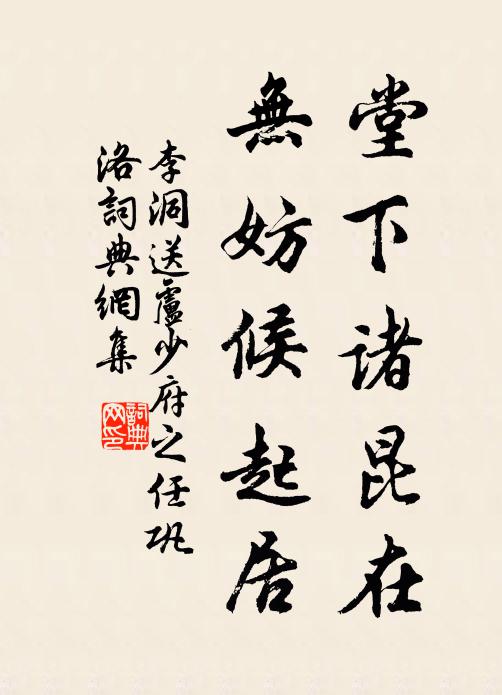 堂下諸昆在
無妨候起居
李洞送盧少府之任巩
洛詞典網集
詞典网印